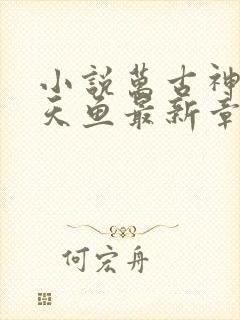 小説萬古神
天魚最新章
何宏舟